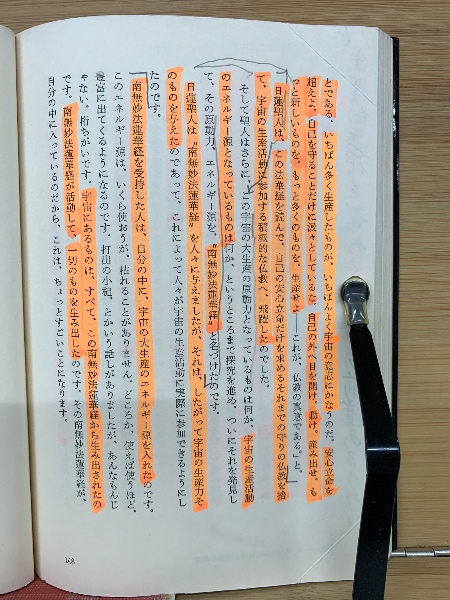 とである。いちばん多く生産したものが、いちばんよく宇宙の意志にかなうのだ。安心立命を
超えよ。自己を守ることだけに汲々としているな。自己の外へ目を開け、動け。産み出せ。も
っと新しいものを、もっと多くのものを、生産せよ――これが、仏教の真意である。」と。
日蓮聖人は、この法華経を読んで、自己の安心立命だけを求めるそれまでの守りの仏教を捨
て、宇宙の生産活動に参加する積極的な仏教へ、飛躍したのでした。
そして聖人はさらに、この宇宙の大生産の原動力となっているものは何か、宇宙の生産活動
のエネルギー源となっているものは何か、というところまで探究を進め、ついにそれを発見し
て、その原動力、エネルギー源を、〝南無妙法蓮華経〟と名づけたのです。
日蓮聖人は〝南無妙法蓮華経〟を人々に与えましたが、それは、したがって宇宙の生産力そ
のものを与えたのであって、これによって人々が宇宙の生産活動に実際に参加できるようにし
たのです。
南無妙法蓮華経を受持した人は、自分の中に、宇宙の大生産のエネルギー源を入れたのです。
このエネルギー源は、いくら使おうが、枯れることがありません。どころか、使えば使うほど、
豊富に出てくるようになるのです。打出の小槌、とかいう話しがありましたが、あんなもんじ
ゃない。桁ちがいです。宇宙にあるものは、すべて、この南無妙法蓮華経から生み出されたの
です。南無妙法蓮華経が活動して、一切のものを生み出したのです。その南無妙法蓮華経が、
自分の中に入っているのだから、これは、ちょっとすごいことになります。
168